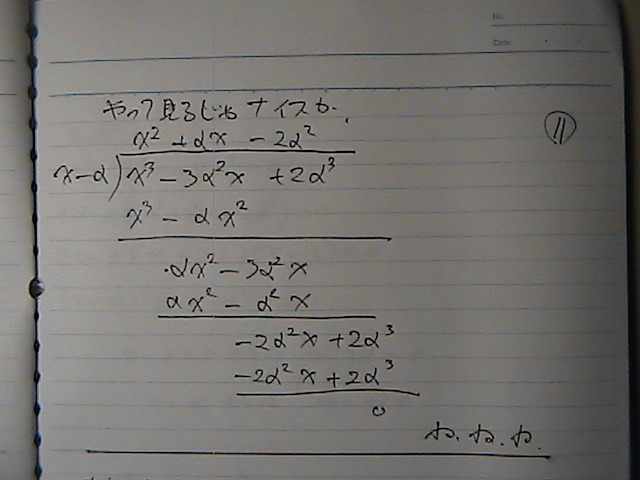 No.
Date
やって見るしかナイスか.
⑪
x² + αx - 2α²
x-α)x³ - 3α²x + 2α³
x³ - αx²
αx² - 3α²x
αx² - α²x
-2α²x + 2α³
-2α²x + 2α³
0
ね.ね.ね.